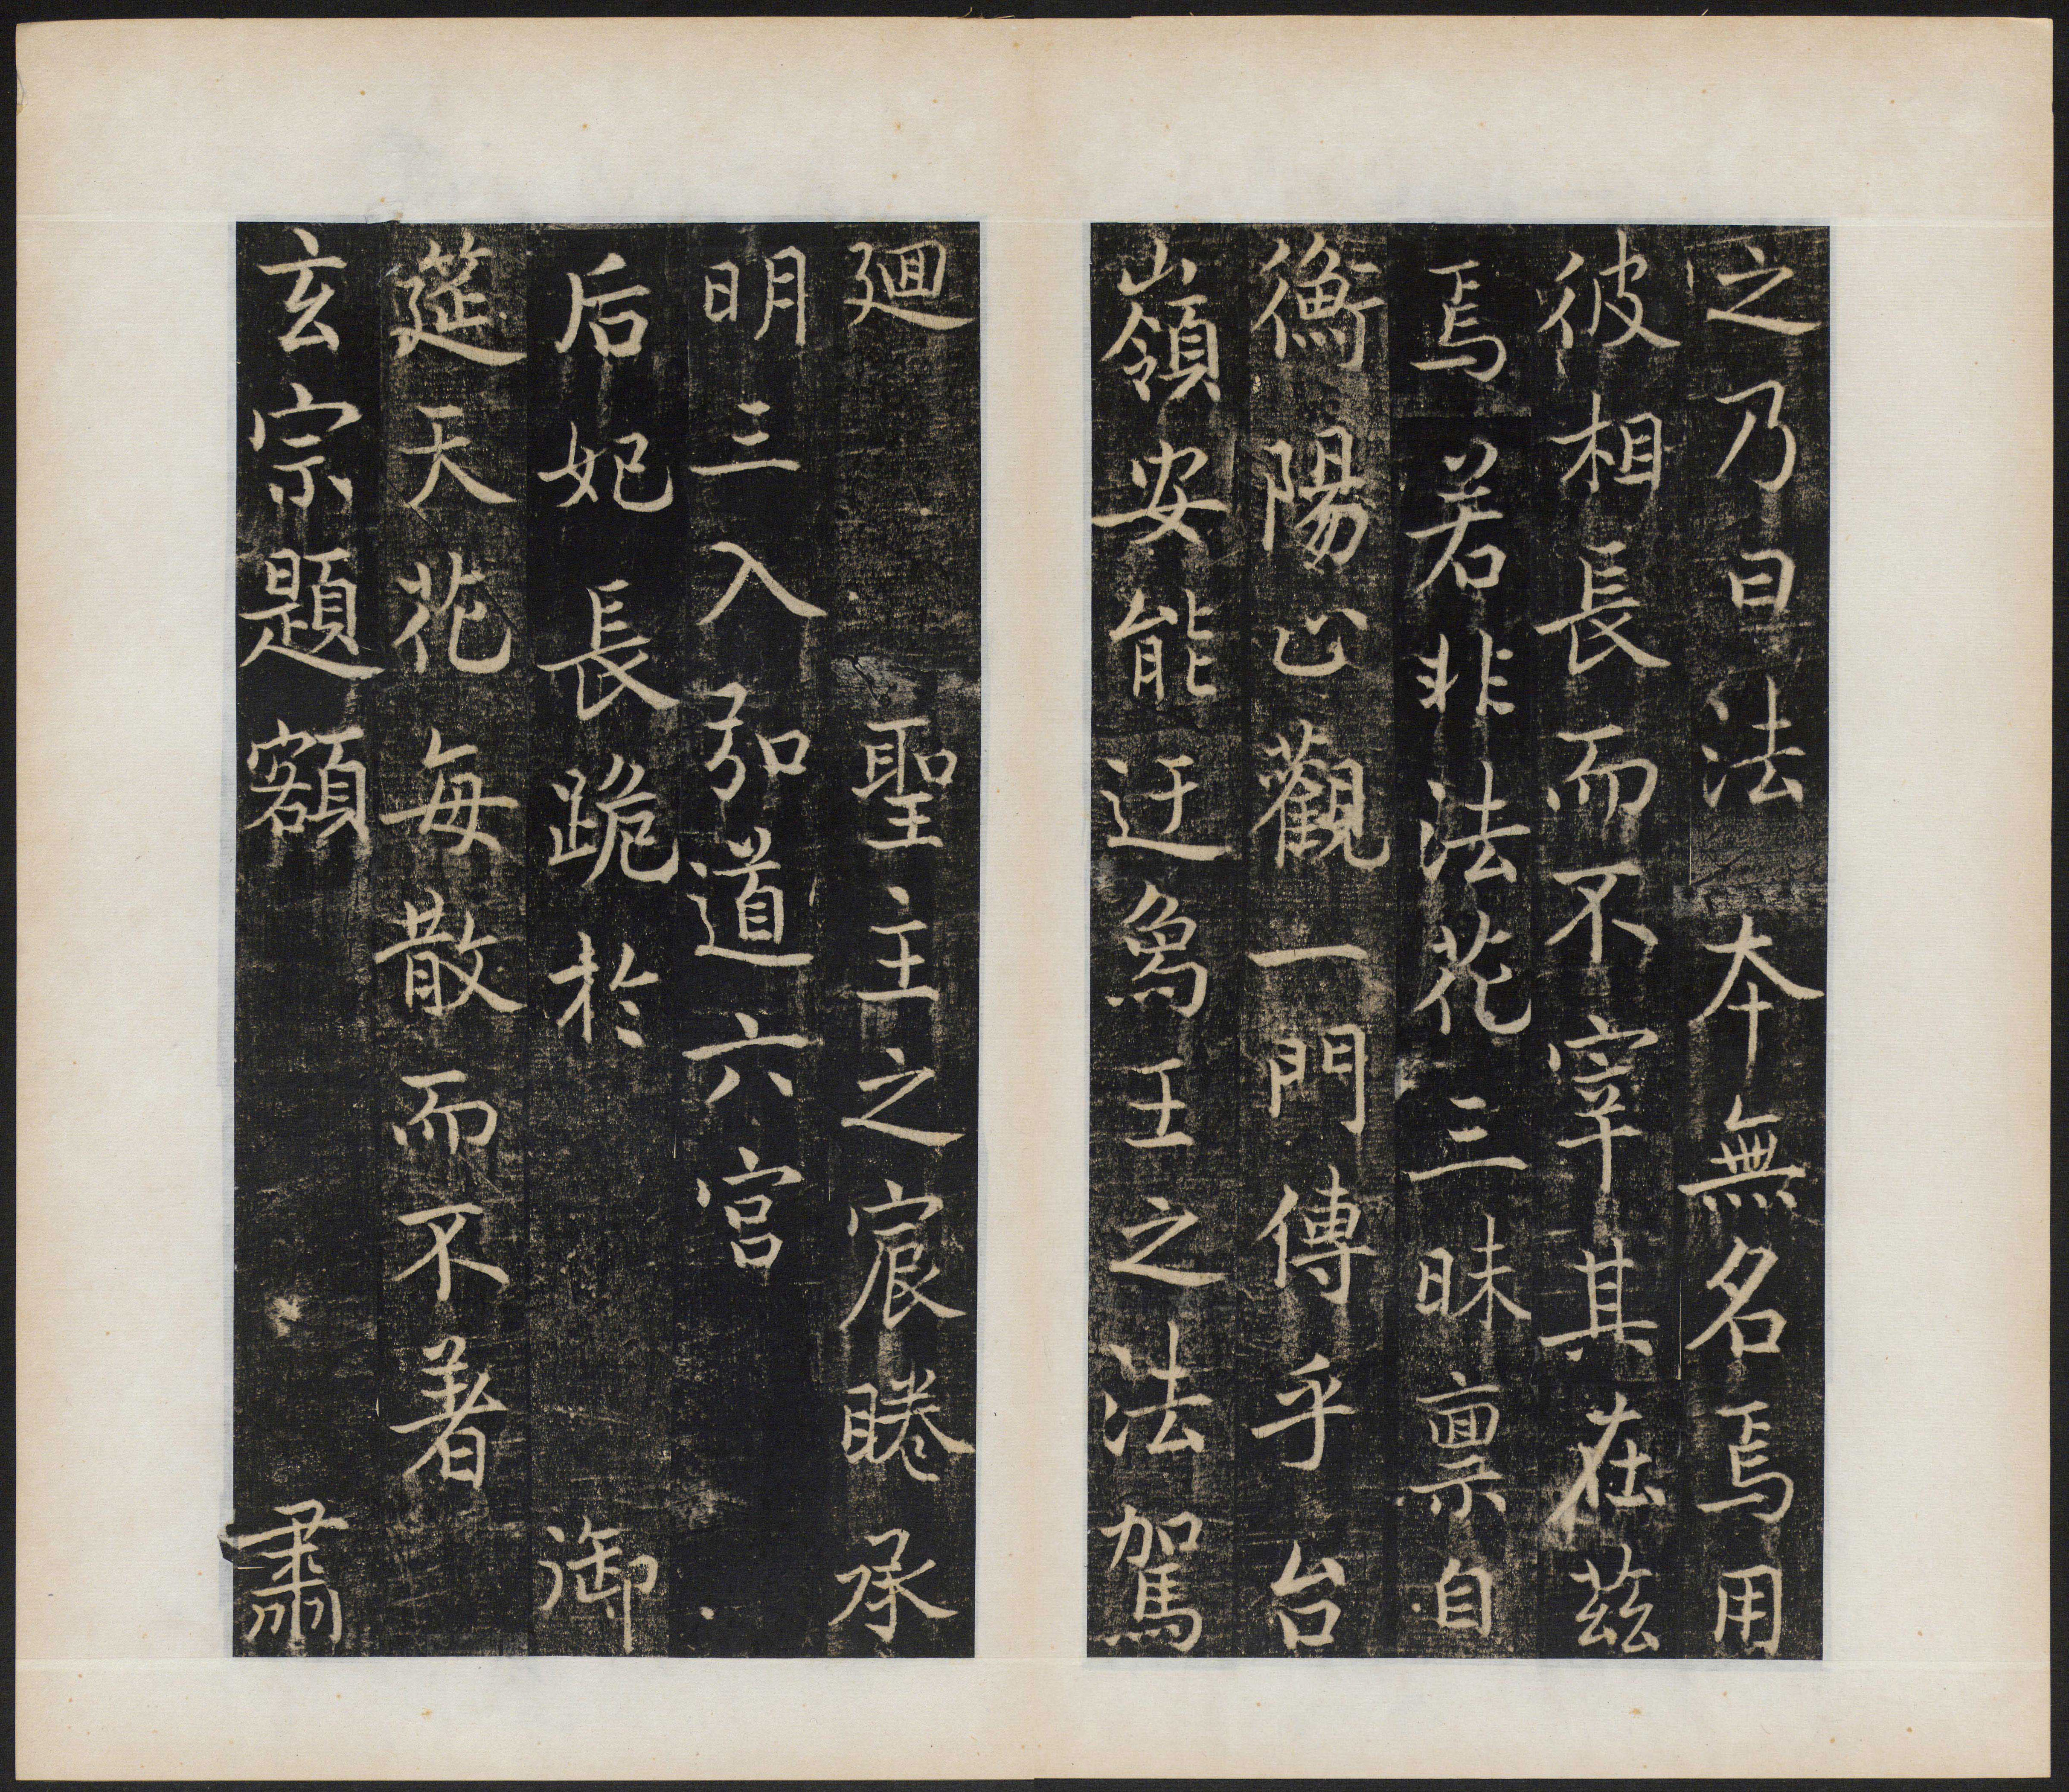 之乃曰法本無名焉用
彼相長而不宰其在茲
焉若非法花三昧禀自
衡陽止觀一門傳乎台
嶺安能迂烏王之法駕
迴聖主之宸睠承
明三入弘道六宮
后妃長跪於御
筵天花每散而不著
玄宗題額肅